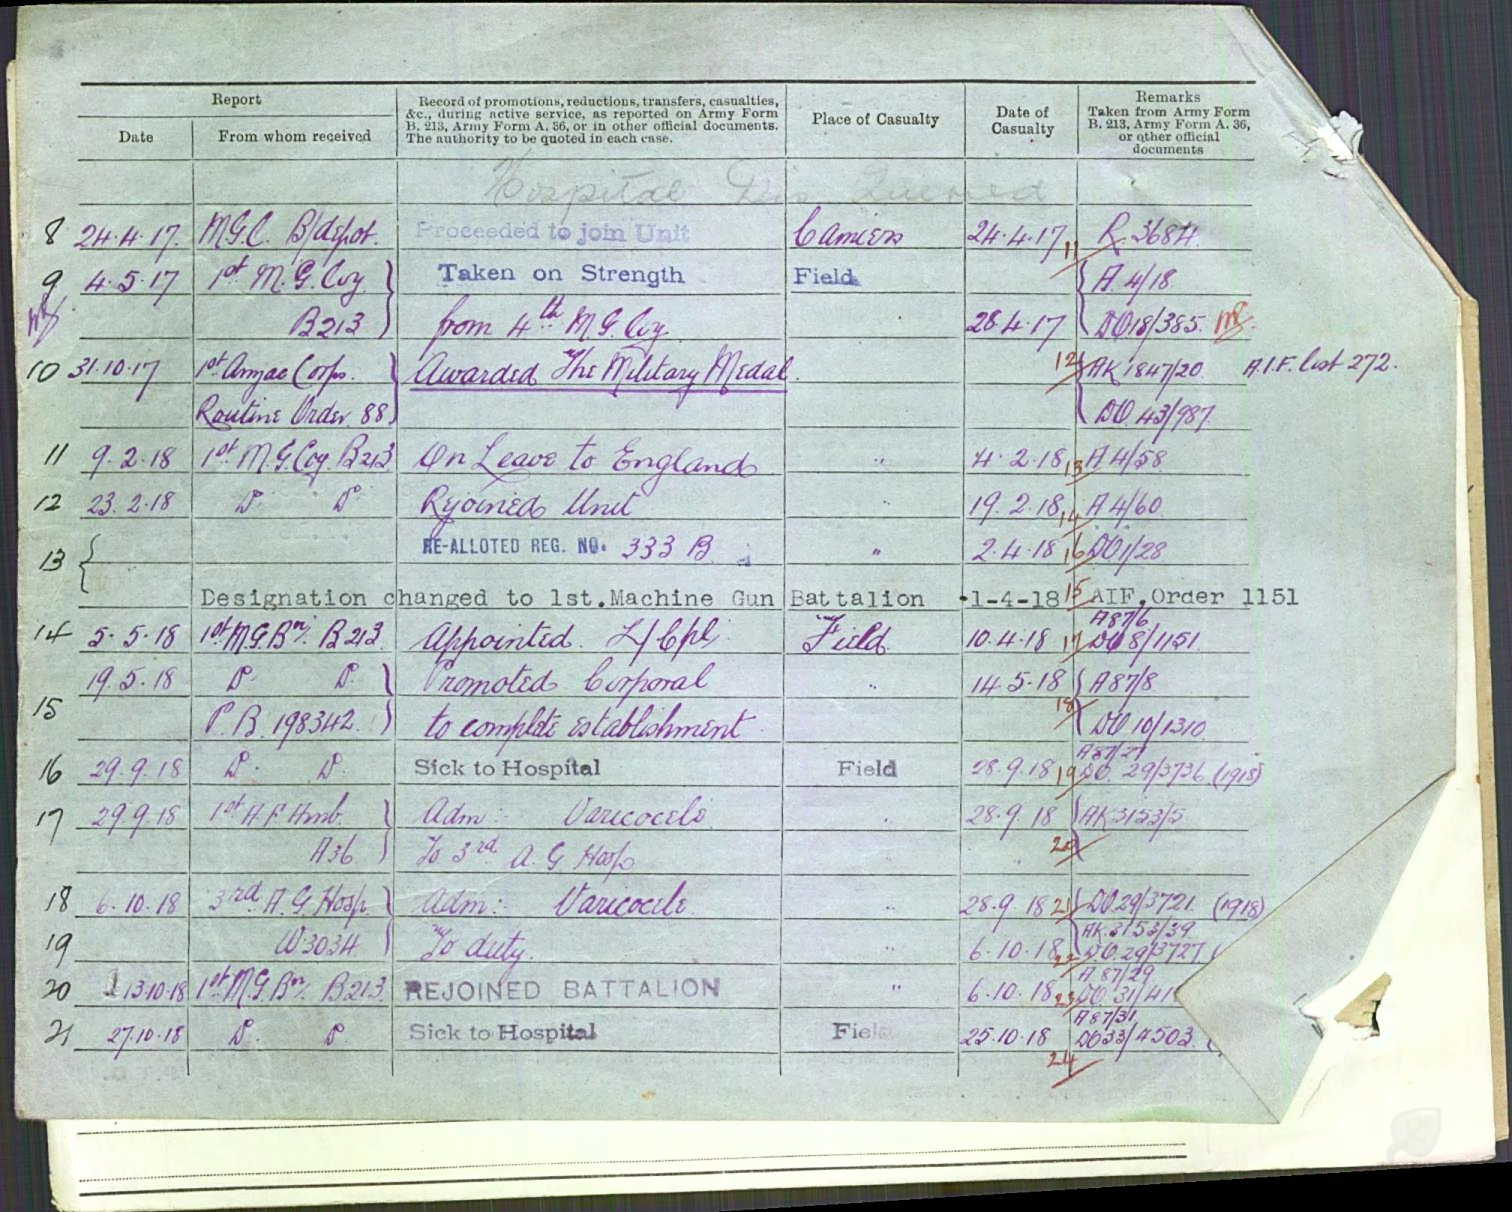 Report
Record of promotions, reductions, transfers, casualties,
&c., during active service, as reported on Army Form
B. 213, Army Form A. 36, or in other official documents.
The authority to be quoted in each case.
Place of Casualty
Date of
Casualty
Remarks
Taken from Army Form
B. 213, Army Form A. 36,
or other official
documents
Date
From whom received
Hospital
8 24.4.17. M.G.C. B/depot. Proceeded to join Unit Camiers 24.4.17 11 R 3684
9 4.5.17 1st M.G. Coy Taken on Strength Field A 4/18
B213 from 4th M.G. Coy 28.4.17 DO18/385.
10 31.10.17 1st Anzac Corps. Awarded The Military Medal. 12 AK1847/20 A.I.F. List 272.
Routine Order 88 DO. 43/987.
11 9.2.18 1st M.G. Coy. B213 On Leave to England " 4.2.18 13 A 4/58
12 23.2.18 Do Do Rejoined Unit " 19.2.18 14 A 4/60
13 RE-ALLOTED REG. NO. 333 B " 2.4.18 16 DO1/28
Designation changed to 1st.Machine Gun Battalion 1-4-18 15 AIF.Order 1151
A87/6
14 5.5.18 1st M.G.Bn. B213. Appointed L/Cpl Field 10.4.18 17 DO8/1151.
19.5.18 Do Do Promoted Corporal " 14.5.18 A87/8
15 B. 198342. to complete establishment 18 DO 10/1310.
A87/27
16 29.9.18 Do Do Sick to Hospital Field 28.9.18 19 DO. 29/3736 (1918)
17 29.9.18 1st A.F. Amb. Adm: Varicocele " 28.9.18 AK3153/5
A36 To 3rd A.G. Hosp 20
18 6.10.18 3rd A.G. Hosp. Adm: Varicocele " 28.9.18 21 DO.29/3721. (1918)
AK.3153/39
19 W3034 To duty. " 6.10.18 22 D.O.29/3727 (
A 87/29
20 13.10.18 1st M.G.Bn. B213 REJOINED BATTALION " 6.10.18 23 DO. 31/41
A87/31
21 27.10.18 Do Do Sick to Hospital Field 25.10.18 DO33/4503. (
24